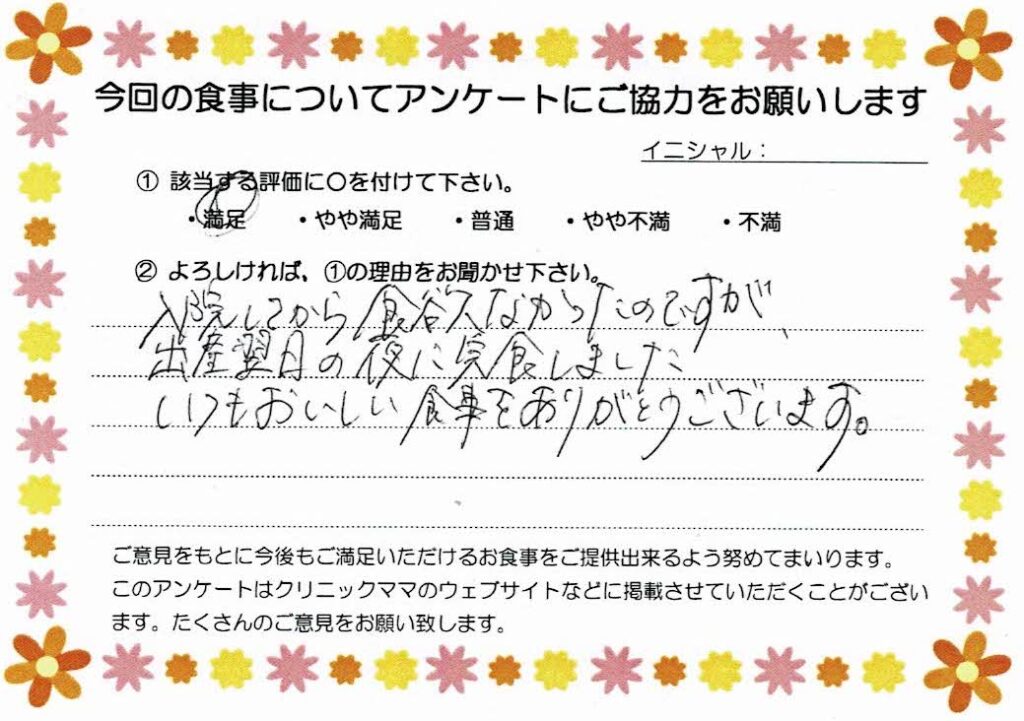 今回の食事についてアンケートにご協力をお願いします
イニシャル：
① 該当する評価に○を付けて下さい。
・満足 ・やや満足 ・普通 ・やや不満 ・不満
② よろしければ、①の理由をお聞かせ下さい。
入院してから食欲なかったのですが、
出産翌日の夜に完食しました
いつもおいしい食事をありがとうございます。
ご意見をもとに今後もご満足いただけるお食事をご提供出来るよう努めてまいります。
このアンケートはクリニックママのウェブサイトなどに掲載させていただくことがござい
ます。たくさんのご意見をお願い致します。